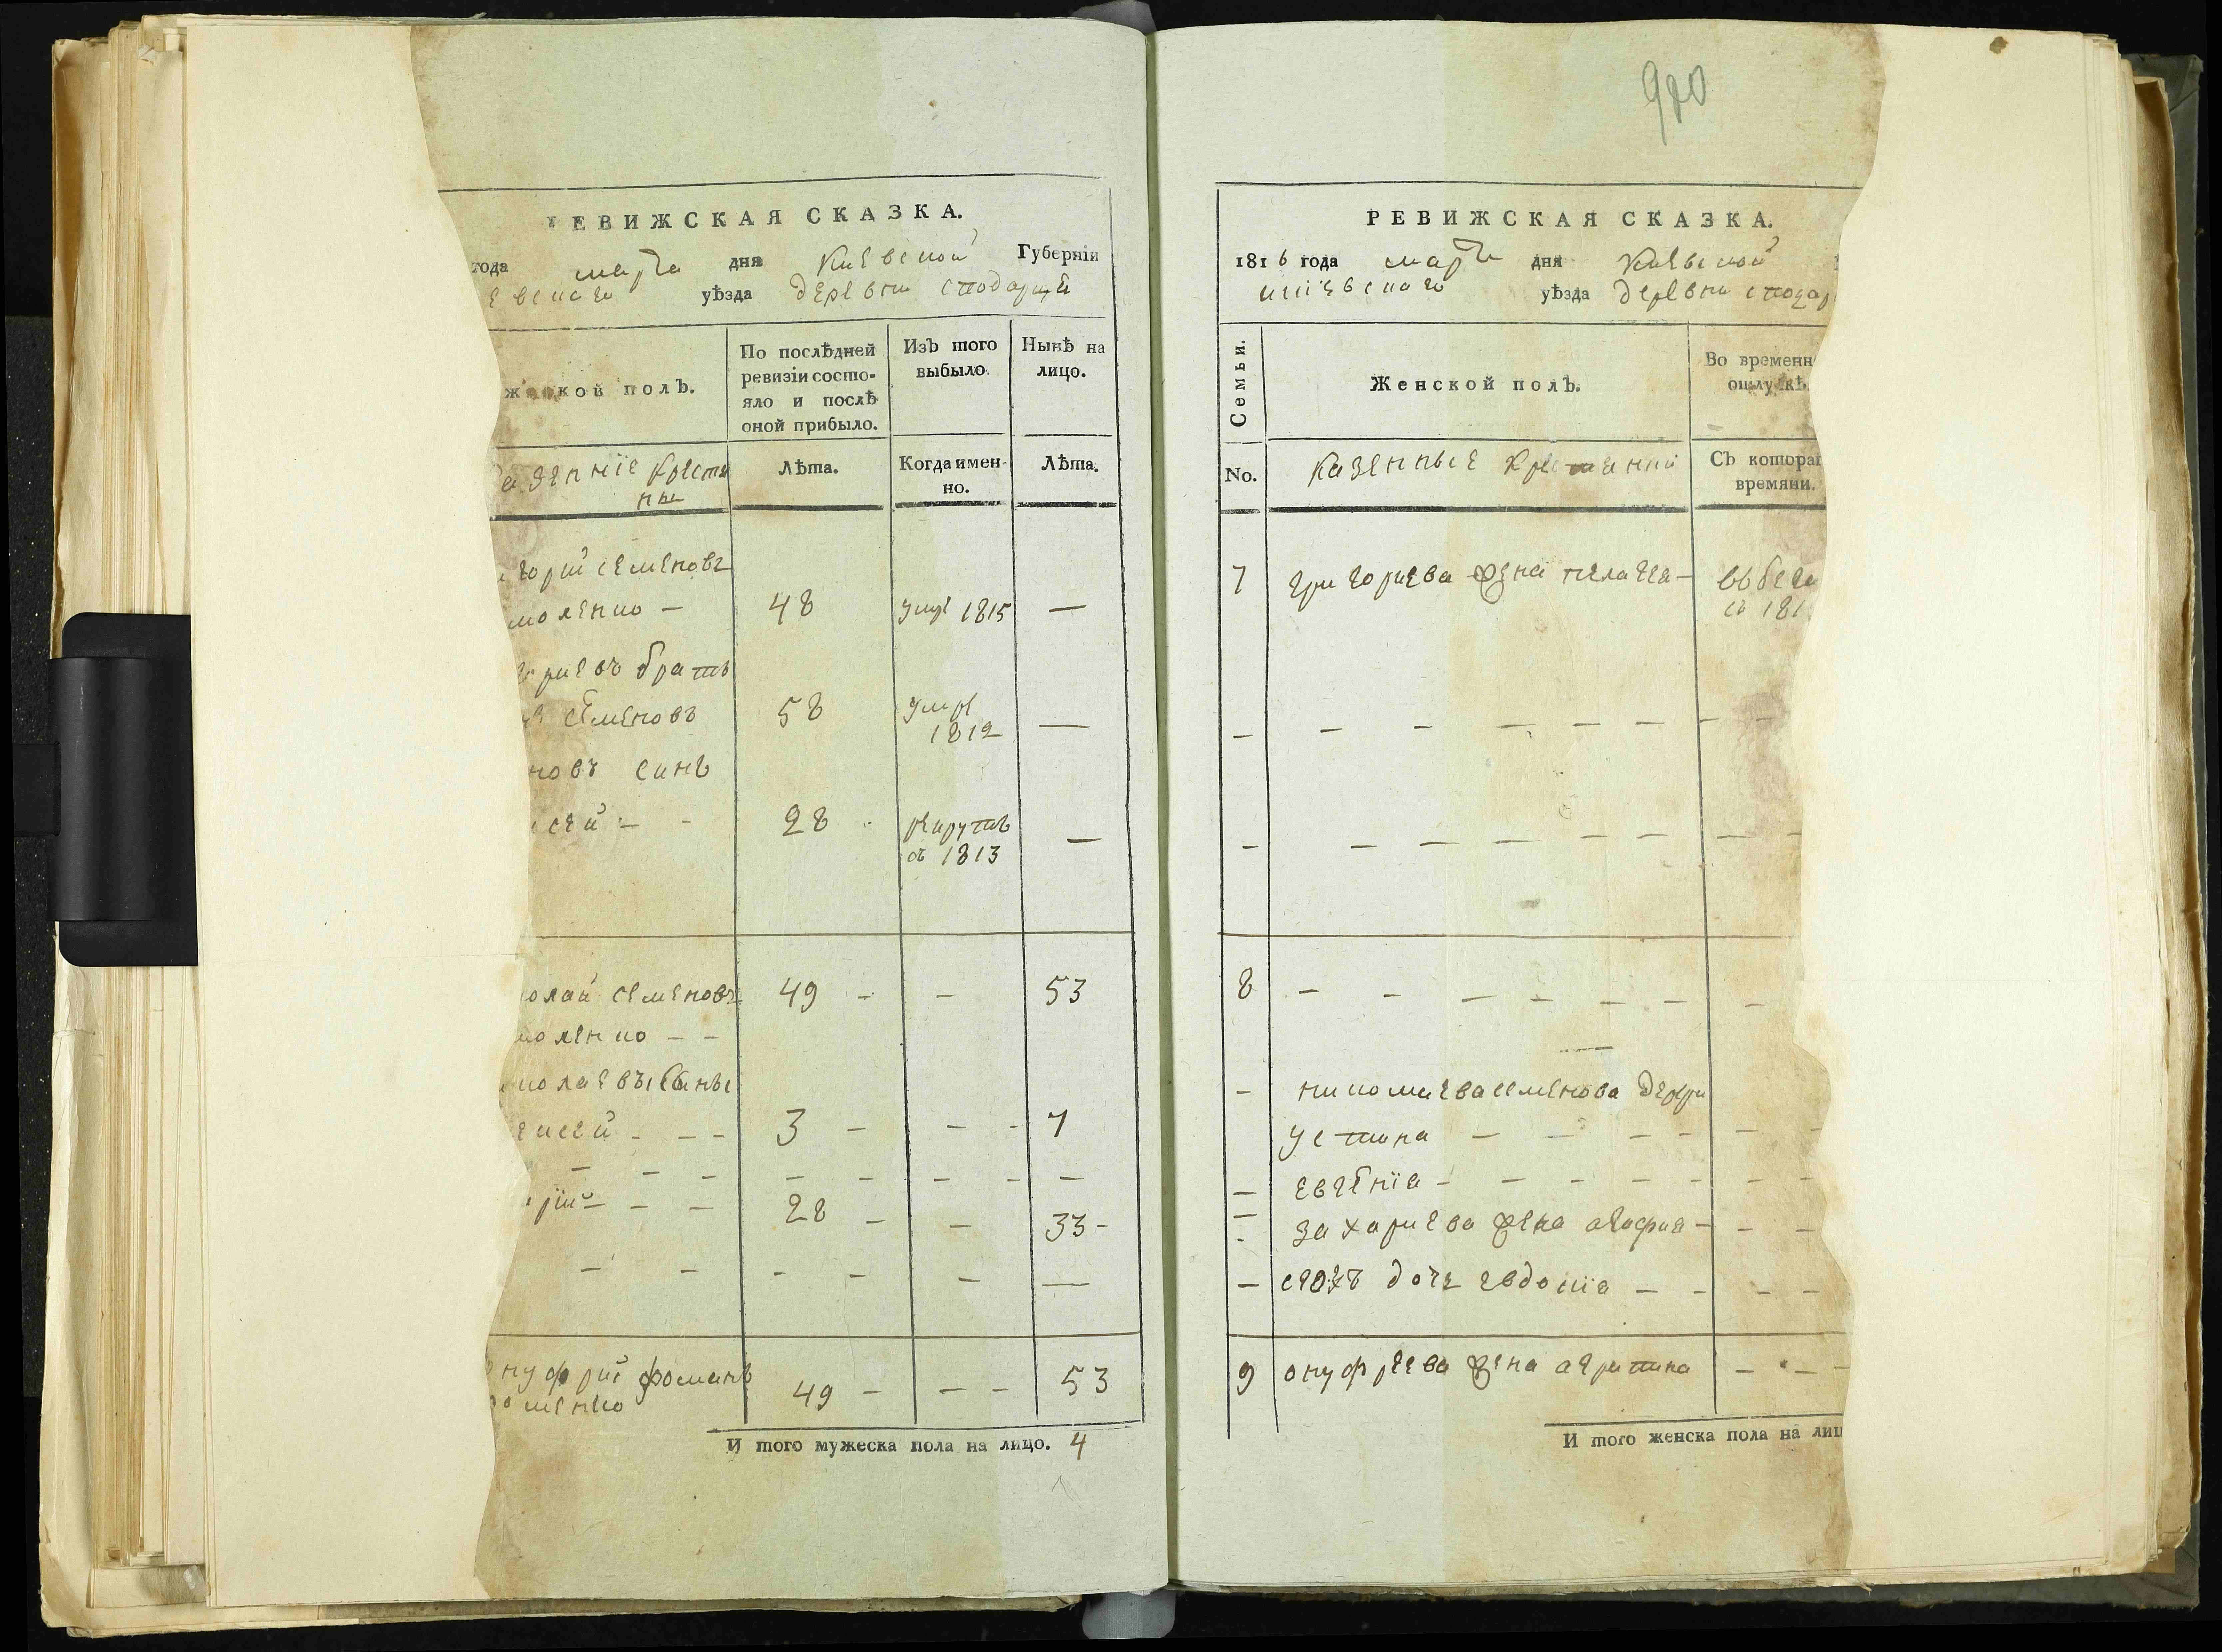 РЕВИЖСКАЯ СКАЗКА.
года марта дня Киевской Губернїи
евскаго уѣзда деревни сподарца
жеской полъ.
По послѣдней ревизїи состояло и послѣ оной прибыло.
Изъ того выбыло.
Нынѣ на лицо.
азеннїе крестя
ны
Лѣта.
Когда имен-
но.
Лѣта.
горий семеновъ
моленко — 48 умре 1815 —
ориевъ братъ
семеновъ 58 умре 1812 —
новъ синъ
сей — - 28 рекрутъ съ 1813 —
олай семеновъ 49 - - 53
моленко - -
колаевы сины
ексей - - - 3 - - - 7
- - - - - - - -
рїй - - - 28 - - 33 -
- - - - - —
нуфрий фоминъ
оменко 49 - - - 53
И того мужеска пола на лицо. 4
980
РЕВИЖСКАЯ СКАЗКА.
1816 года марта дня Киевской
уѣзда деревни сподар
Семьи.
Женской полъ.
Во временн
отлучкѣ
No.
казенные крестянки
Съ котораг
времяни.
7 григориева жена пелагея - въ бега
съ 181
- - - - - - - - -
- - - - - - - -
8 - - - - - - -
- николаева семенова дочери
устина - - - - - -
— евгенїа - - - - - - -
— захариева жена агафия - - -
— егожъ дочь евдокїа - - - -
9 онуфреева жена агрипина - - -
И того женска пола на лиц